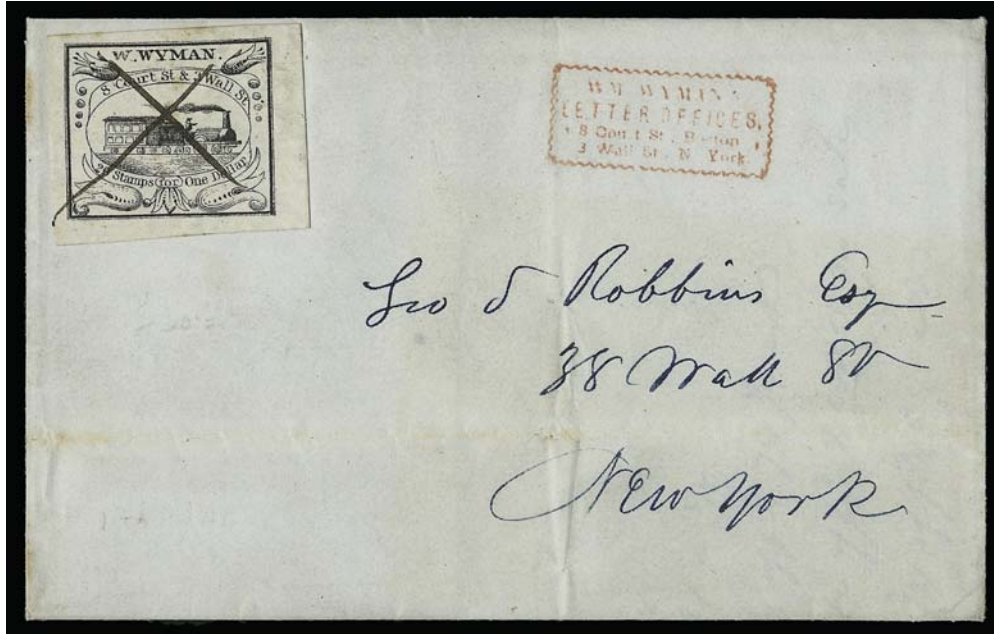 W. WYMAN.
8 Court St & 3 Wall St.
20 Stamps (for) One Dollar
WM WYMAN'S
LETTER OFFICES,
8 Court St., Boston,
3 Wall St., N. York.
Geo S Robbins Esq
38 Wall St
New York